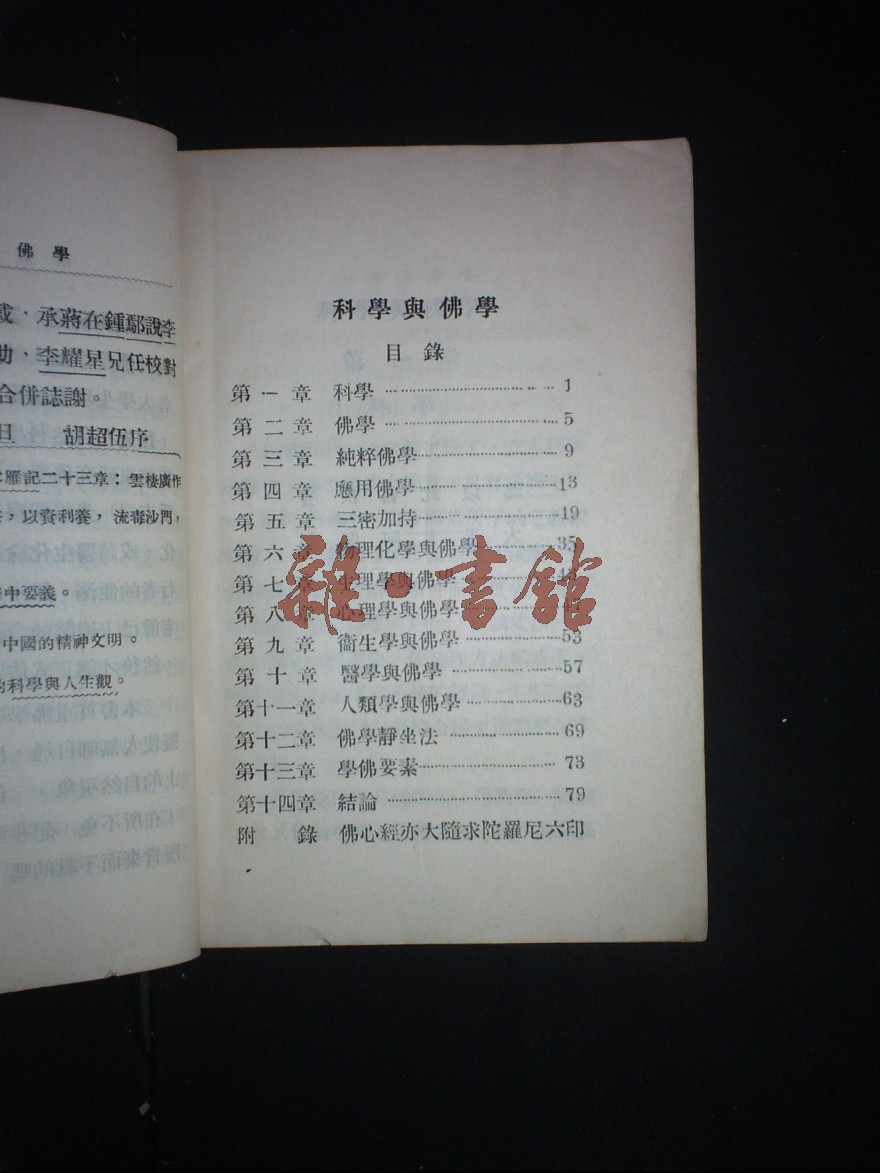 佛學
承蔣在鍾鄢說李
李耀星兄任校對
合併誌謝。
旦 胡超伍序
雁記二十三章：雲棲廣作
，以資利養，流毒沙門，
中要義。
中國的精神文明。
的科學與人生觀。
科學與佛學
目錄
第一章 科學 1
第二章 佛學 5
第三章 純粹佛學 9
第四章 應用佛學 13
第五章 三密加持 19
第六章 物理化學與佛學 35
第七章 生理學與佛學
第八章 心理學與佛學
第九章 衞生學與佛學 53
第十章 醫學與佛學 57
第十一章 人類學與佛學 63
第十二章 佛學靜坐法 69
第十三章 學佛要素 73
第十四章 結論 79
附錄 佛心經亦大隨求陀羅尼六印
雜·書館